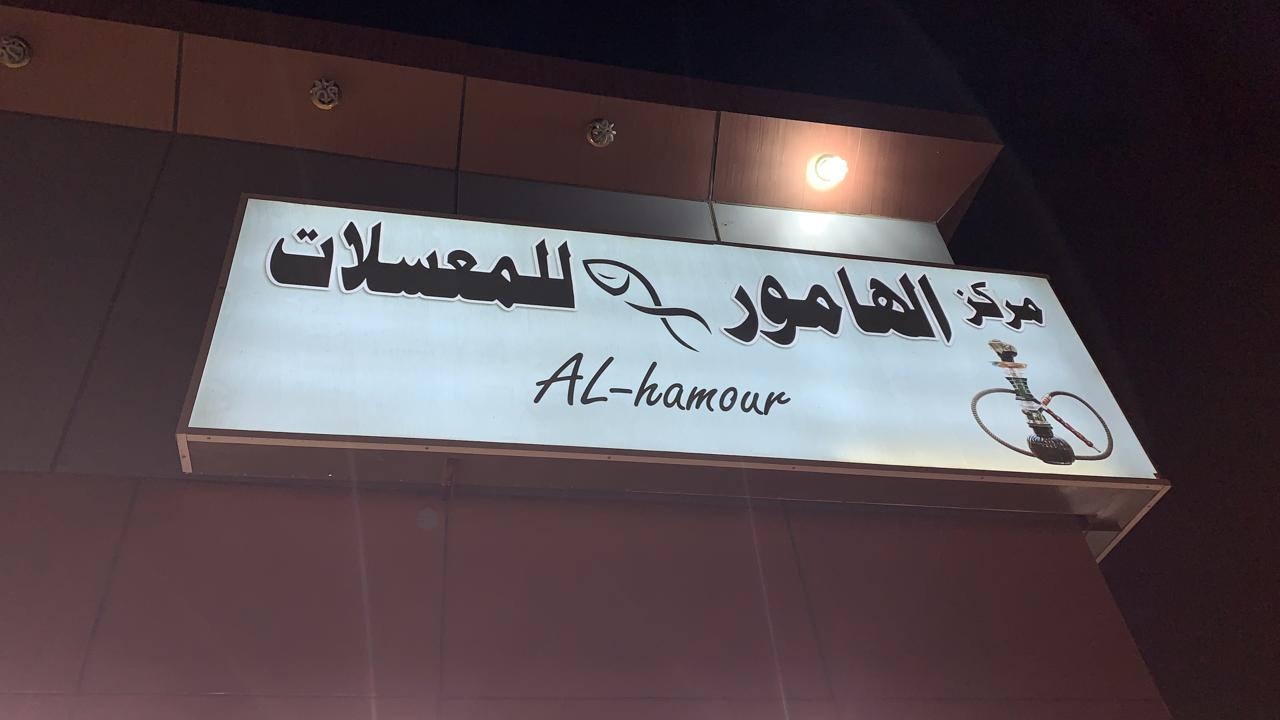 مركز الهامور للمعسلات
AL-hamour